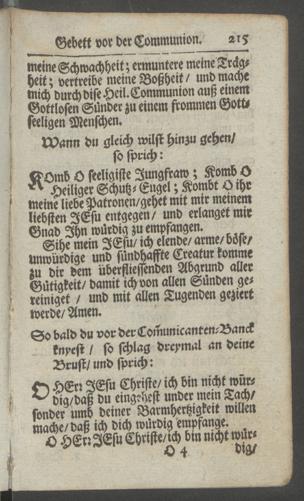 Gebett vor der Communion. 215
meine Schwachheit; ermuntere meine Träg-
heit; vertreibe meine Boßheit / und mache
mich durch dise Heil. Communion auß einem
Gottlosen Sünder zu einem frommen Gott-
seeligen Menschen.
Wann du gleich wilst hinzu gehen/
so sprich:
KOmb O seeligiste Jungfraw; Komb O
Heiliger Schutz-Engel; Kombt O ihr
meine liebe Patronen/gehet mit mir meinem
liebsten JEsu entgegen/ und erlanget mir
Gnad Ihn würdig zu empfangen.
Sihe mein JEsu/ ich elende/ arme/ böse/
unwürdige und sündhaffte Creatur komme
zu dir dem überfliessenden Abgrund aller
Gütigkeit/ damit ich von allen Sünden ge-
reiniget / und mit allen Tugenden geziert
werde/ Amen.
So bald du vor der Com̃unicanten-Banck
knyest / so schlag dreymal an deine
Brust/ und sprich:
O HErr JEsu Christe/ ich bin nicht wür-
dig/ daß du eingehest under mein Tach/
sonder umb deiner Barmhertzigkeit willen
mache/ daß ich dich würdig empfange.
O HErr JEsu Christe/ ich bin nicht wür-
O 4 dig/